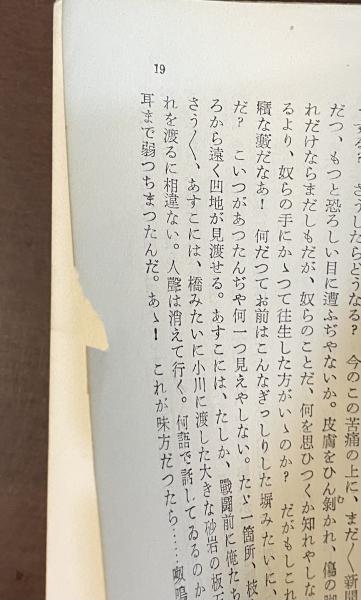 19
する? さうしたらどうなる? 今のこの苦痛の上に、まだ〱新聞
だつ、もつと恐ろしい目に遭ふぢやないか。皮膚をひん剝かれ、傷の脚
れだけならまだしもだが、奴らのことだ、何を思ひつくか知れやしな
るより、奴らの手にかゝつて往生した方がいゝのか? だがもしこれ
癪な藪だなあ! 何だつてお前はこんなぎつしりした塀みたいに、
だ? こいつがあつたんぢや何一つ見えやしない。たゞ一箇所、枝
ろから遠く凹地が見渡せる。あすこには、たしか、戰鬪前に俺たち
さう〱、あすこには、橋みたいに小川に渡した大きな砂岩の板石
れを渡るに相違ない。人聲は消えて行く。何語で話してゐるのか
耳まで弱つちまつたんだ。あゝ! これが味方だつたら……呶鳴